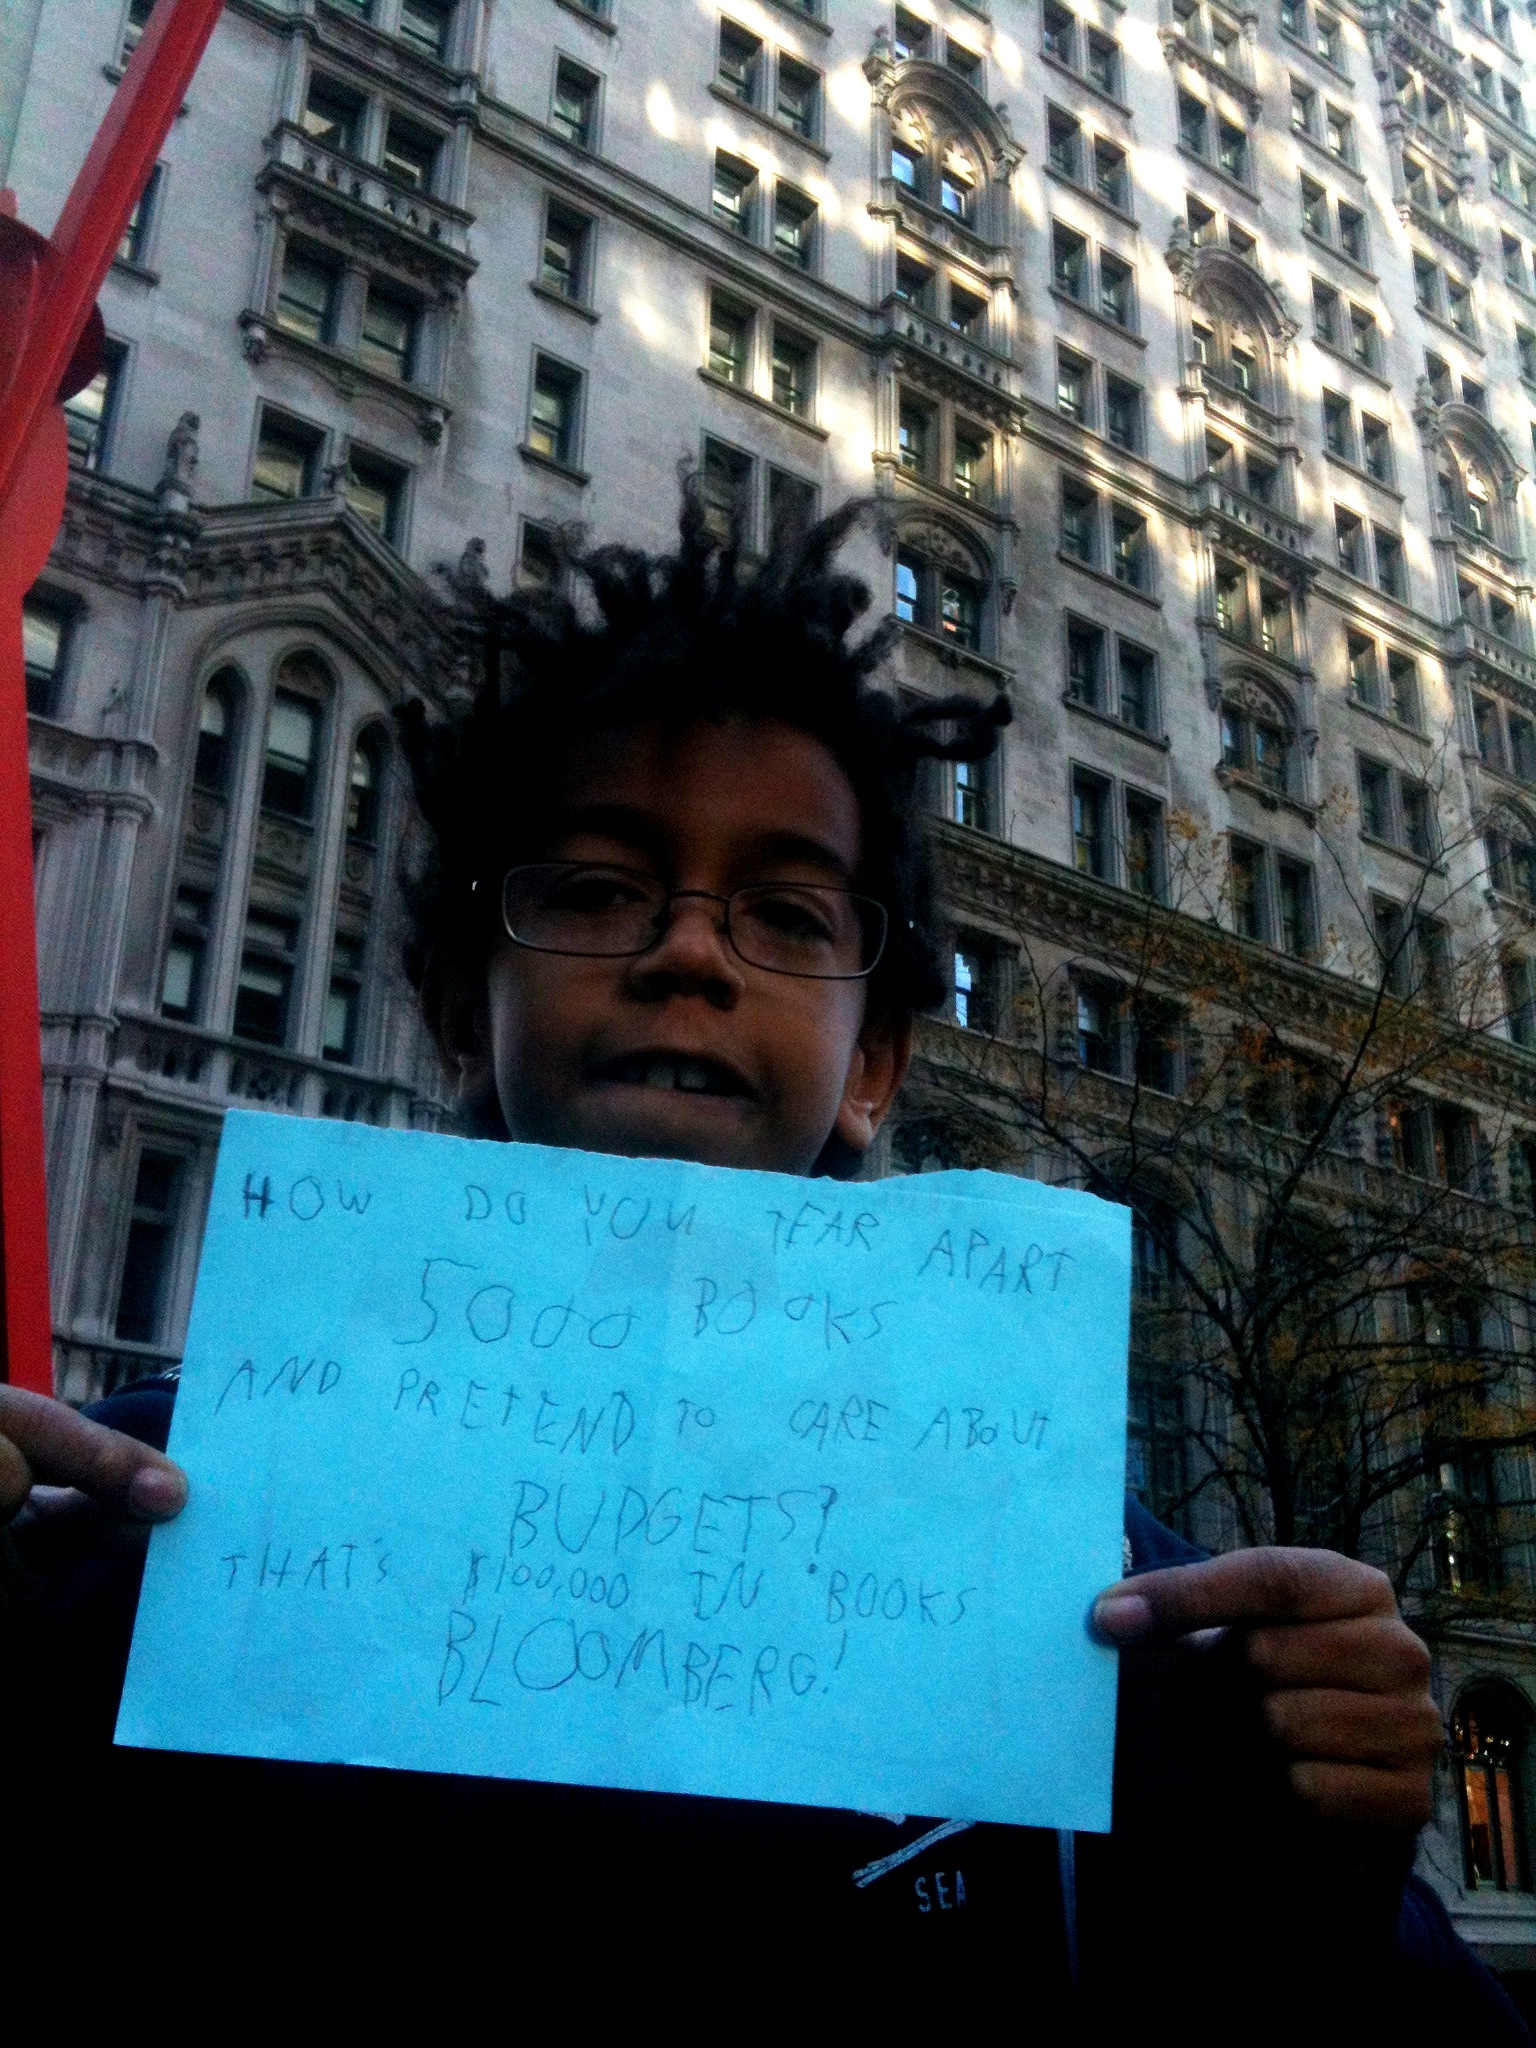 HOW DO YOU TEAR APART
5000 BOOKS
AND PRETEND TO CARE ABOUT
BUDGETS?
THAT'S $100,000 IN BOOKS
BLOOMBERG!
SEA